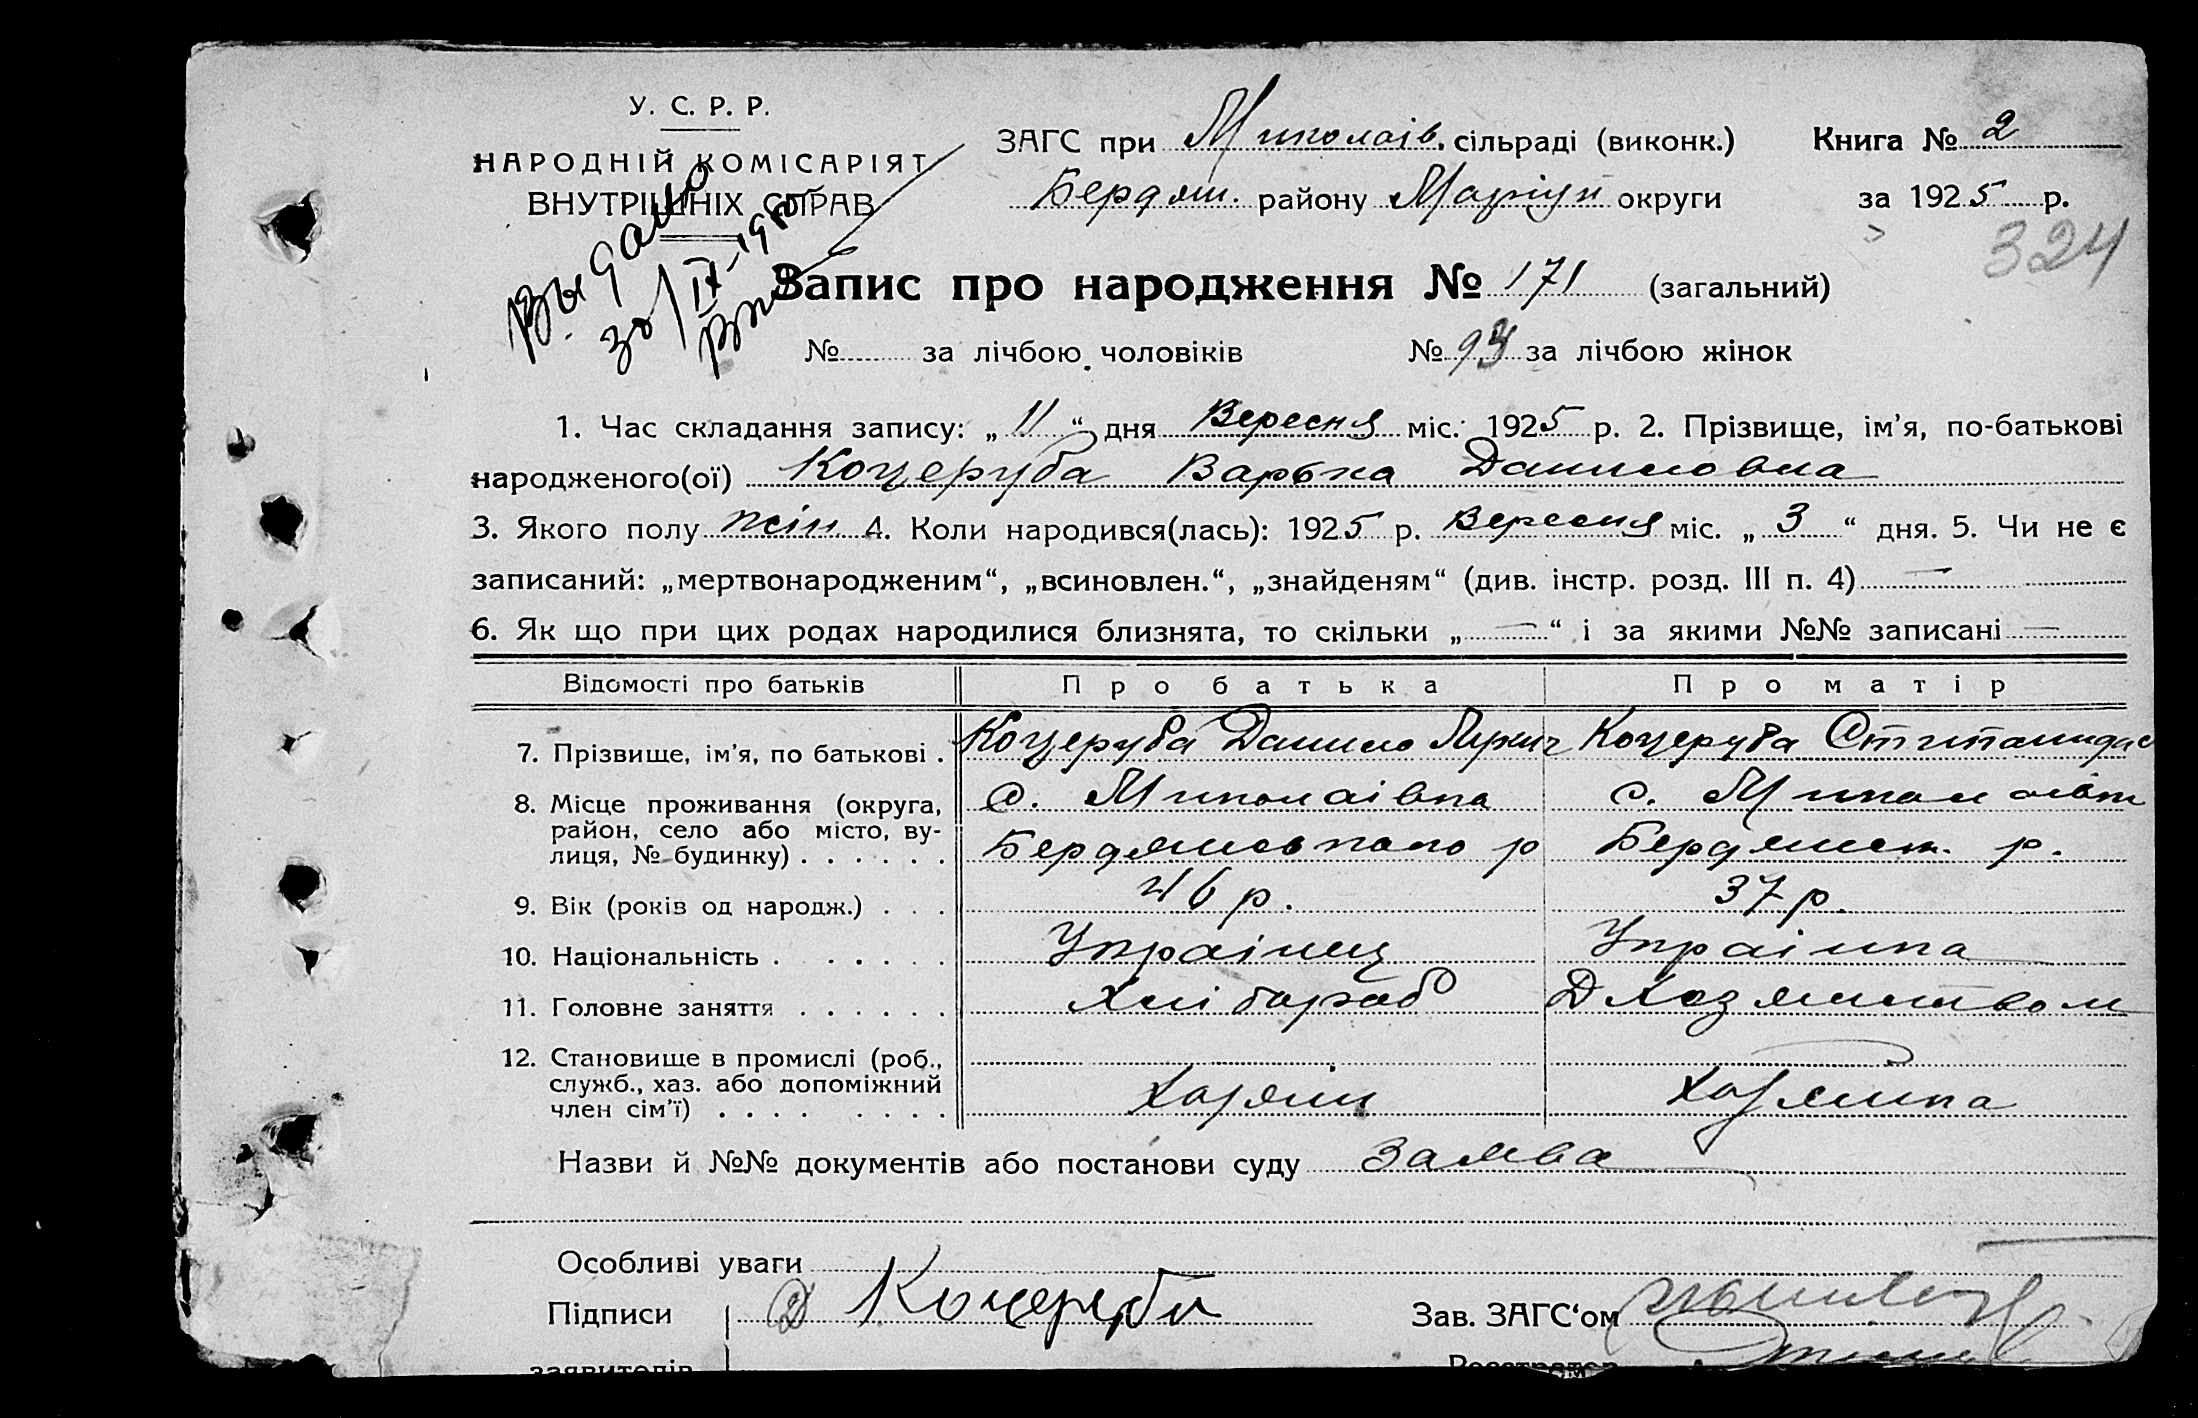 У. С. Р. Р.
НАРОДНІЙ КОМІСАРІЯТ
ВНУТРІШНІХ СПРАВ
ЗАГС при Миколаів. сільраді (виконк.) Книга № 2
Бердян. району Маріуп округи за 1925 р.
324
Выдано
30/IX-
Запис про народження № 171 (загальний)
№ за лічбою чоловіків № 93 за лічбою жінок
1. Час складання запису: „11“ дня Вересня міс. 1925 р. 2. Прізвище, ім’я, по-батькові
народженого(ої) Коцеруба Варька Даниловна
3. Якого полу жін. 4. Коли народився(лась): 1925 р. Вересня міс. „3“ дня. 5. Чи не є
записаний: „мертвонародженим“, „всиновлен.“, „знайденям“ (див. інстр. розд. III п. 4) —
6. Як що при цих родах народилися близнята, то скільки „—“ і за якими №№ записані —
Відомості про батьків Про батька Про матір
7. Прізвище, ім’я, по батькові . Коцеруба Данило Коцеруба
8. Місце проживання (округа, район, село або місто, вулиця, № будинку) . . . . . . с. Миколаівка с. Миколаівк
Бердянського р Бердянськ. р.
9. Вік (років од народж.) . . . 46 р. 37 р.
10. Національність . . . . . . Украінец Украінка
11. Головне заняття . . . . . . Хлібороб Д хозяйством
12. Становище в промислі (роб., служб., хаз. або допоміжний член сім’ї) . . . . . . . . Хазяін Хазяйка
Назви й №№ документів або постанови суду Заява
Особливі уваги
Підписи Д Коцеруба Зав. ЗАГС‘ом
заявителів Реєстратор